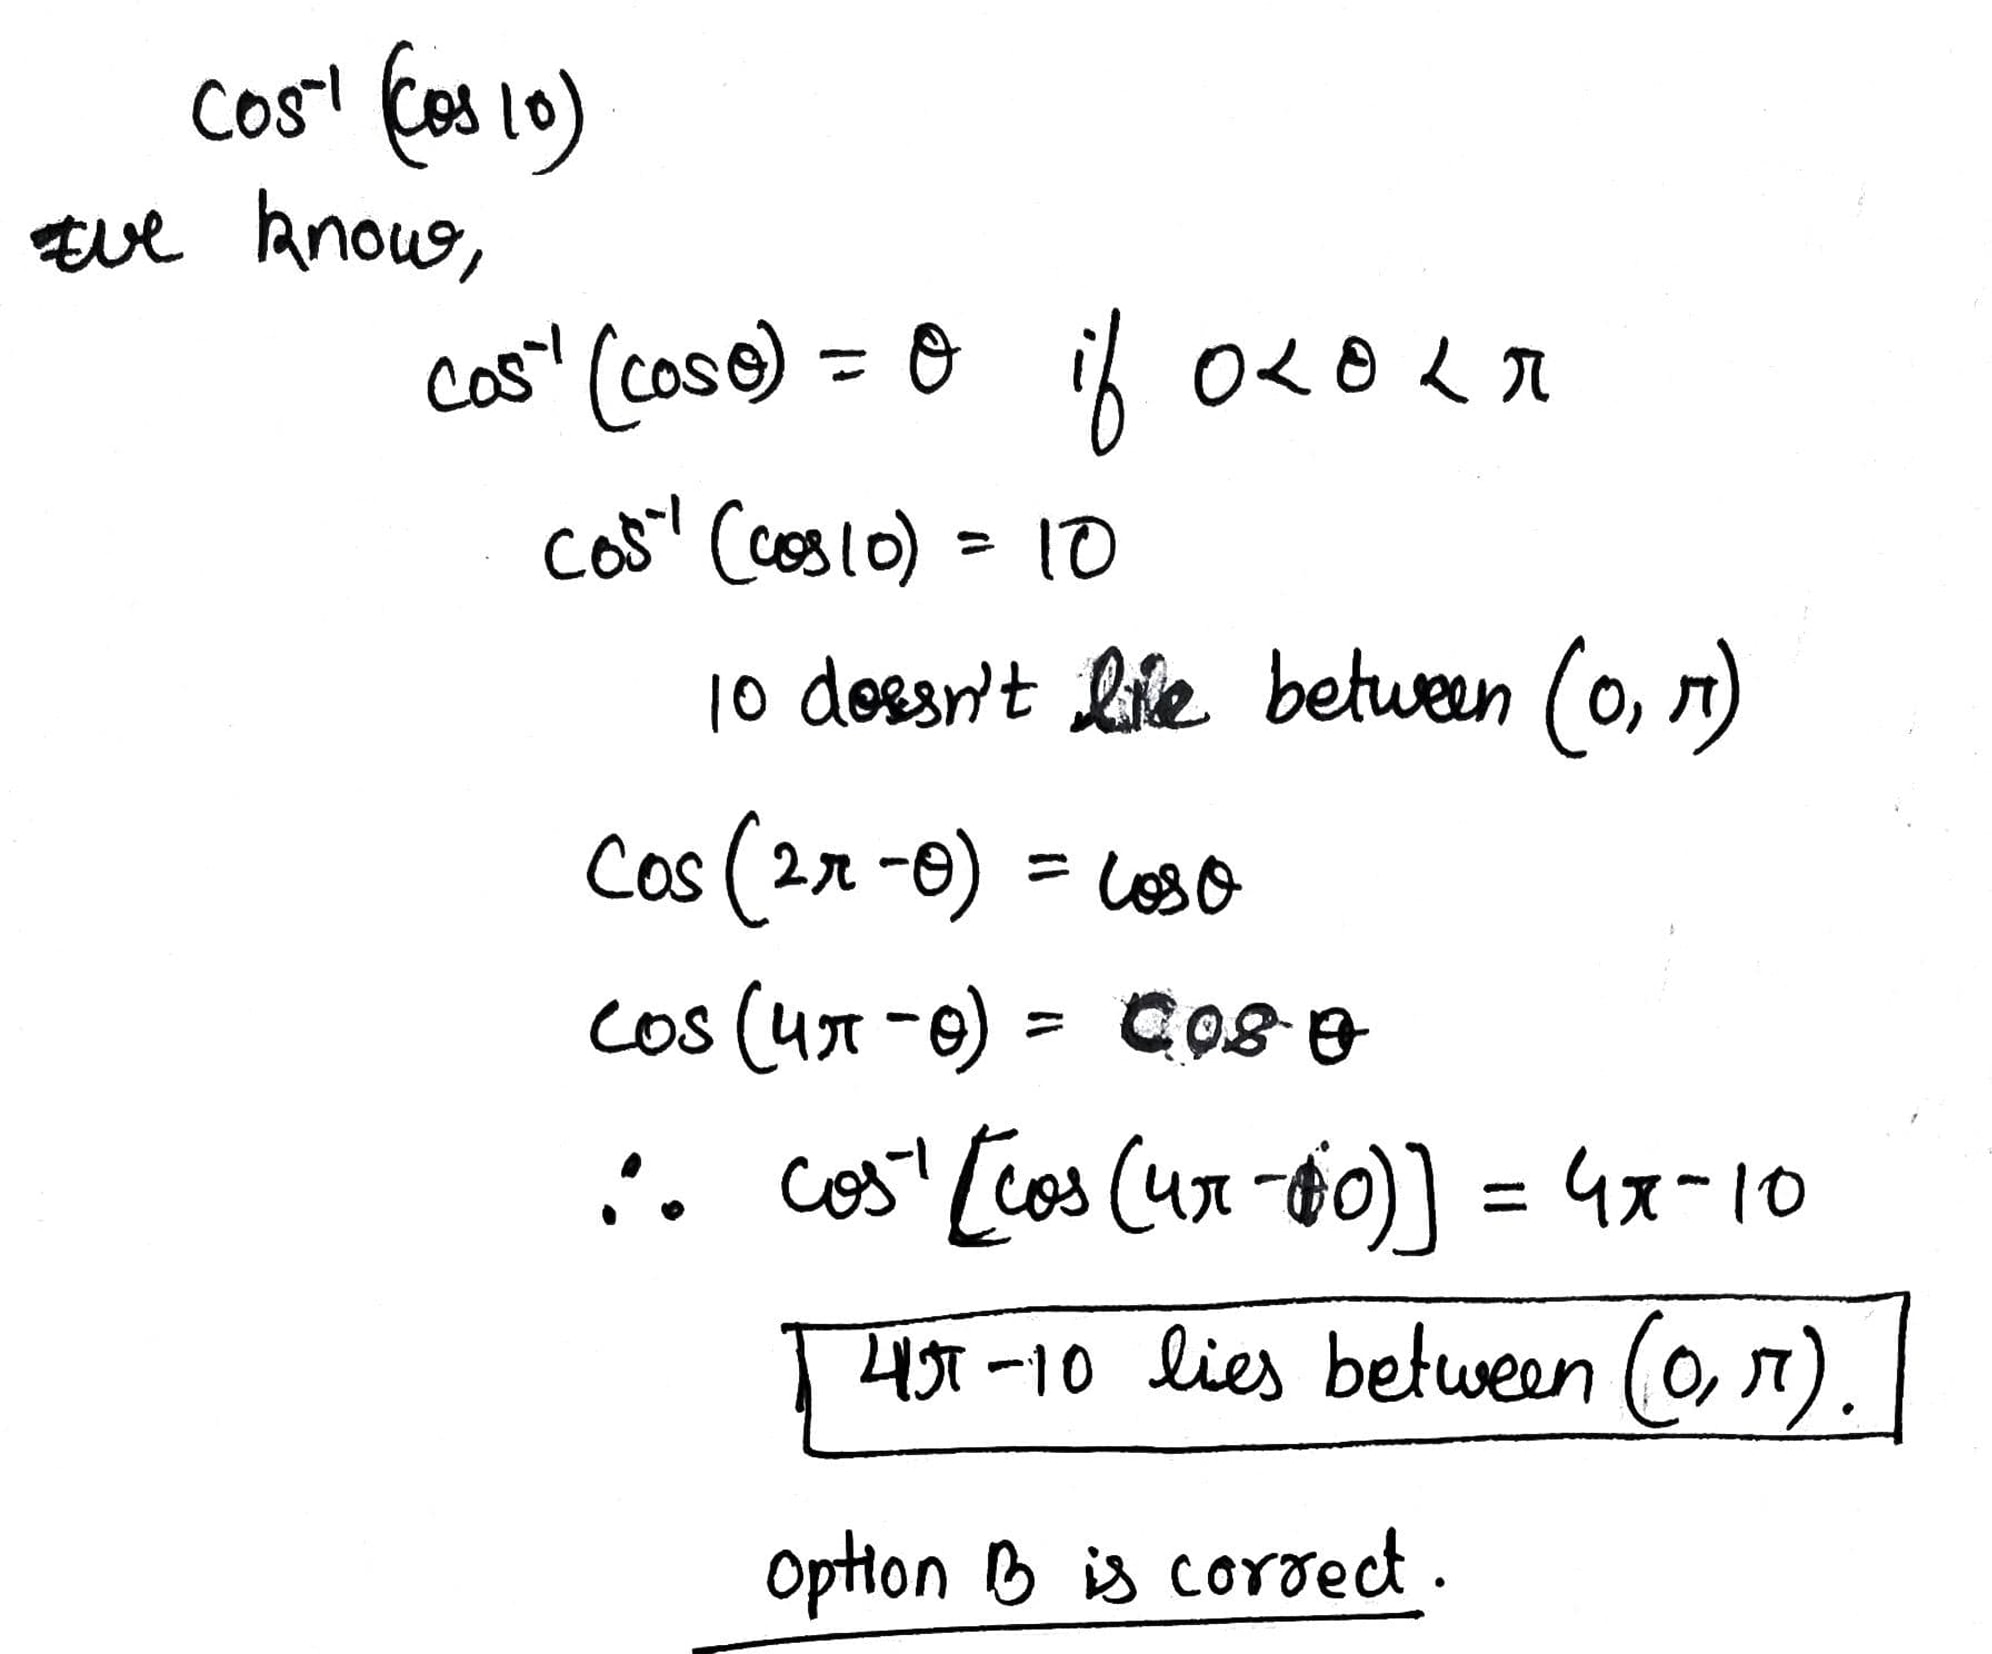 cos⁻¹ (cos 10)
we know,
cos⁻¹ (cosθ) = θ if 0<θ<π
cos⁻¹ (cos10) = 10
10 doesn't lie between (0, π)
cos (2π-θ) = cosθ
cos (4π-θ) = cos θ
∴ cos⁻¹ [cos (4π-10)] = 4π-10
4π-10 lies between (0, π).
option B is correct.